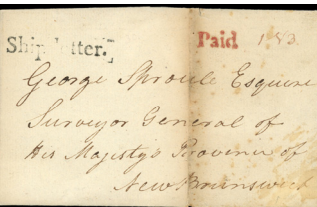 Ship Letter. Paid
George Sproule Esquire
Surveyor General of
His Majesty's Province of
New Brunswick